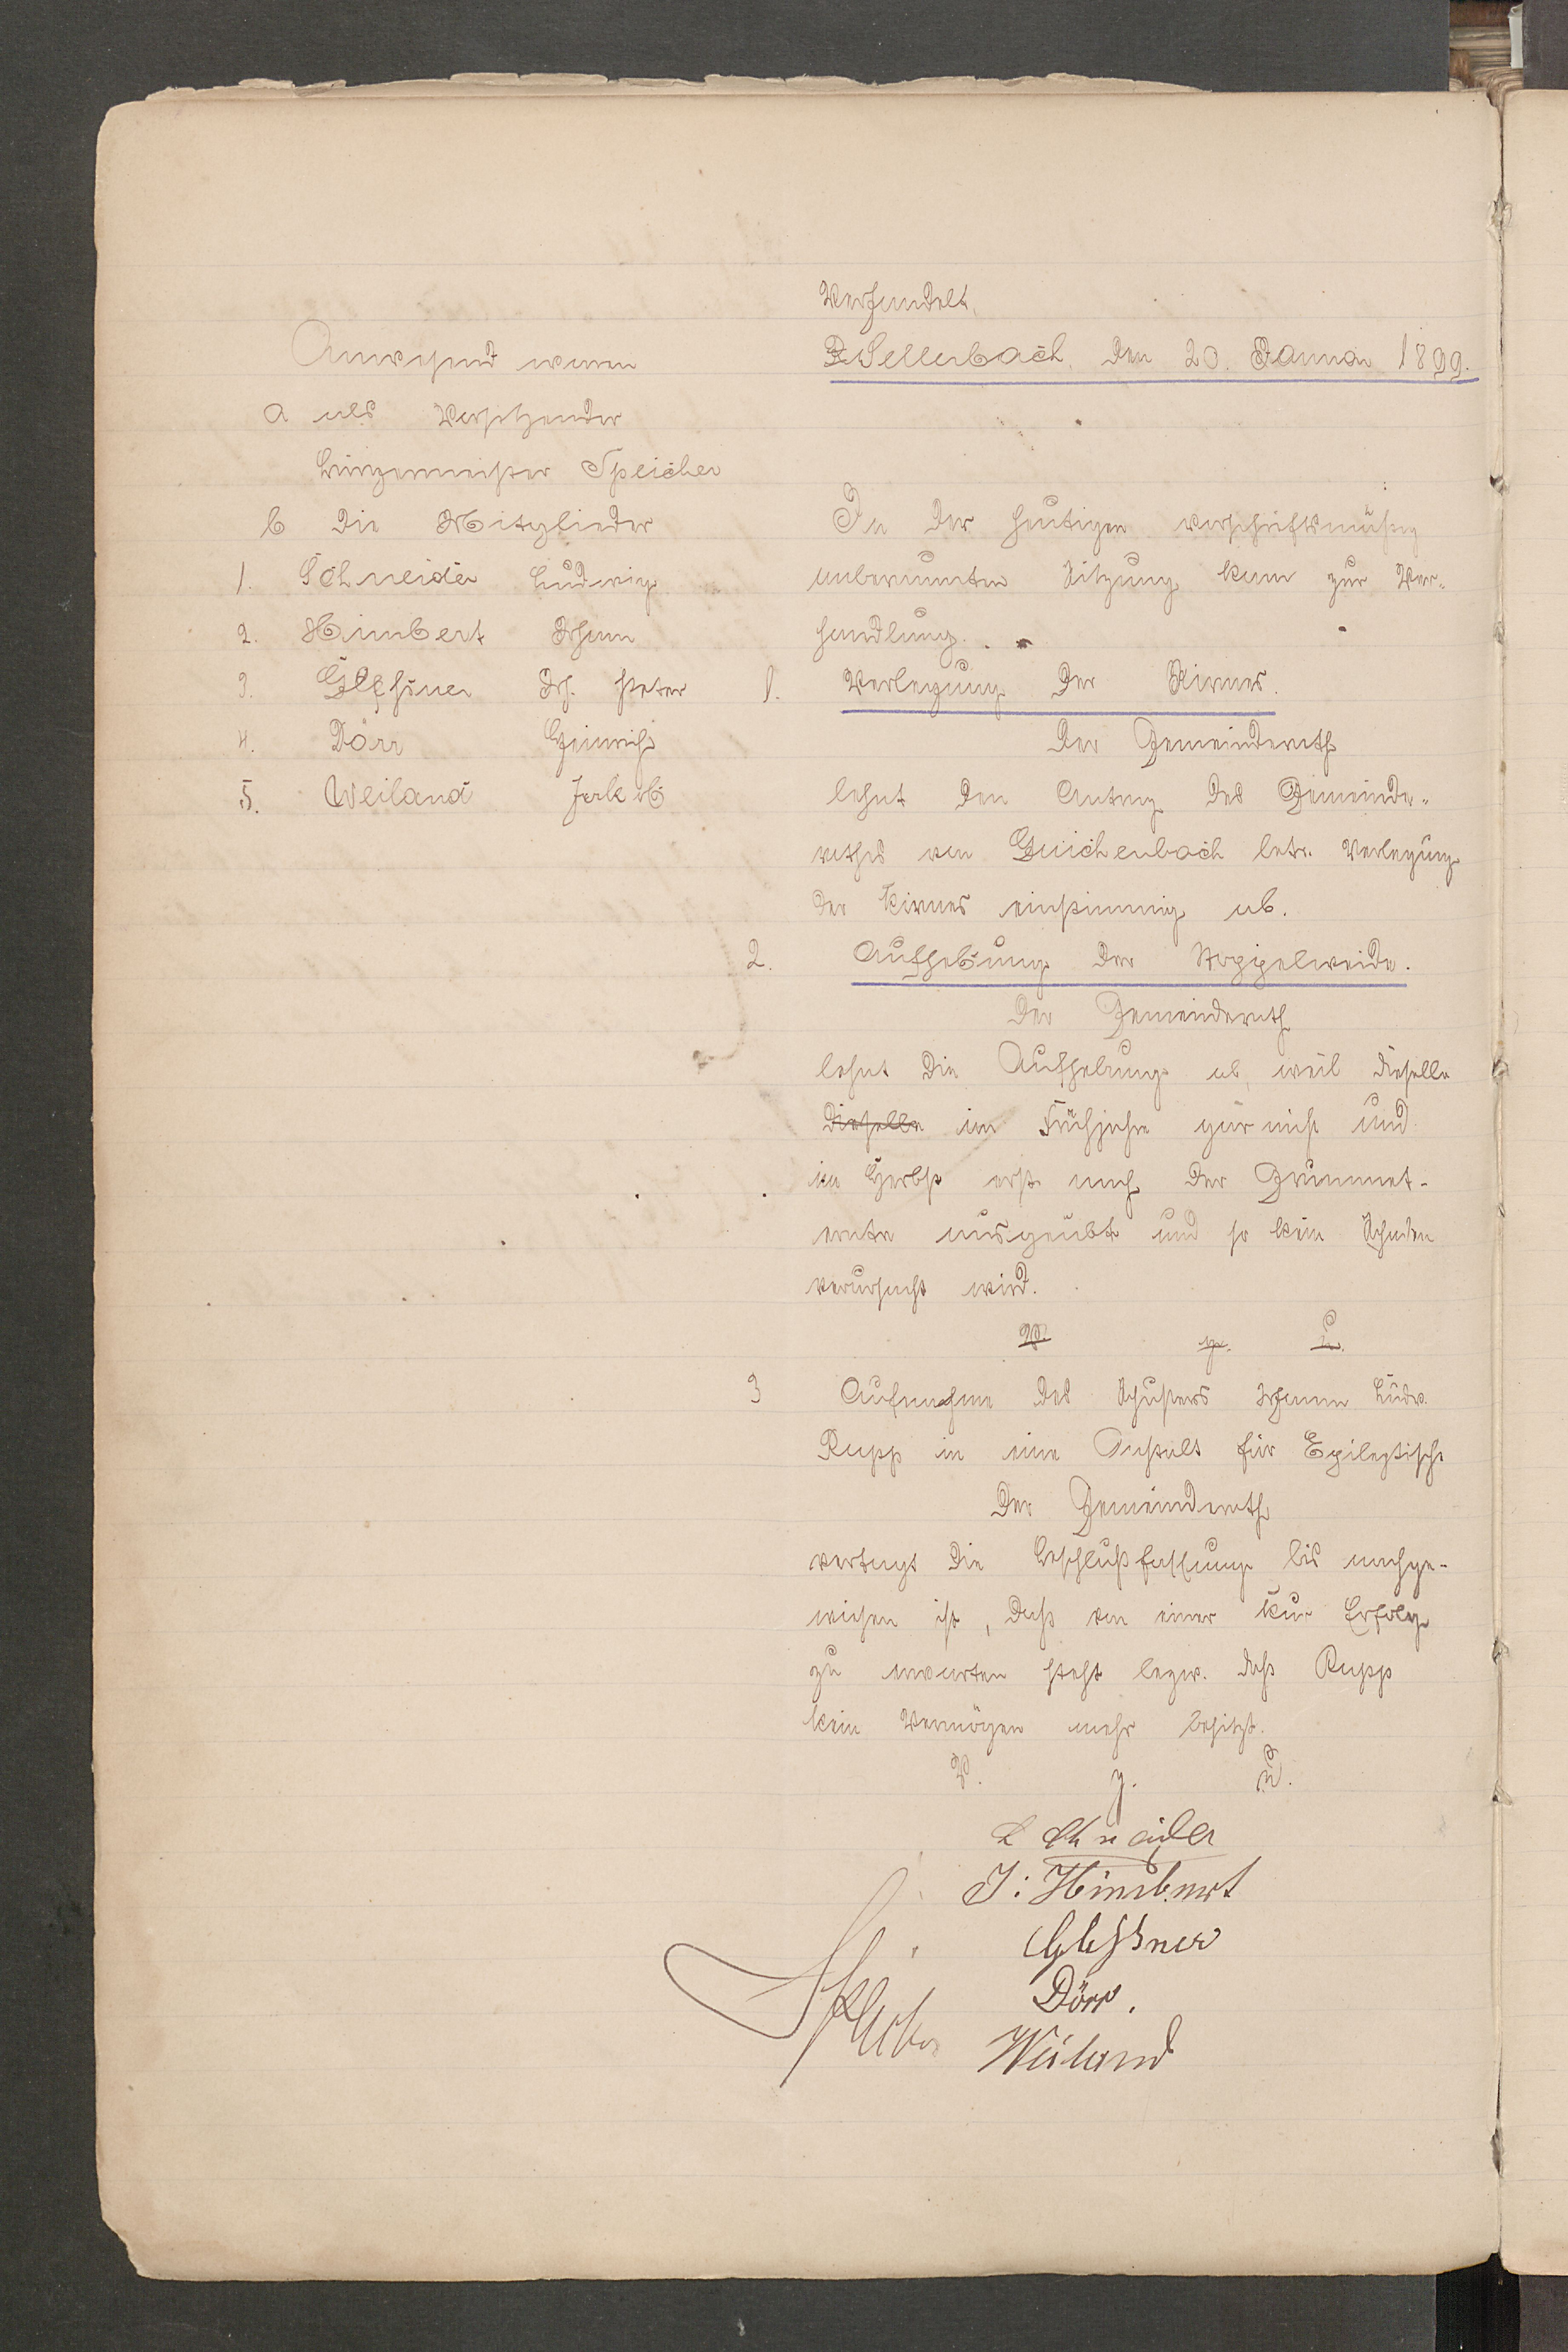 Verhandelt
Sellerbach, den 20. Januar 1899.
Anwesend waren
a als Vorsitzender
Bürgermeister Speicher
b die Mitglieder
1. Schneider Ludwig
2. Himbert Johann
3. Gleßner Joh. Peter
4. Dörr Heinrich
5. Weiland Jakob
In der heutigen vorschriftsmäßig
anberaumten Sitzung kam zur Ver-
handlung.
1. Verlegung der Kirmes.
Der Gemeinderath
lehnt den Antrag des Gemeinde-
rathes von Güichenbach betr. Verlegung
der Kirmes einstimmig ab.
2. Aufhebung der Stoppelweide.
Der Gemeinderath
lehnt die Aufhebung ab, weil dieselbe
dieselbe im Frühjahre gar nicht und
im Herbst erst nach der Grummet-
ernte ausgeübt und so kein Schaden
verursacht wird.
V. g. u.
3 Aufnahme des Schusters Johann Ludw.
Rupp in eine Anstalt für Epileptische
Der Gemeinderath
vertagt die Beschlußfassung bis nachge-
wiesen ist, daß von einer Kur Erfolg
zu erwarten steht bezw. daß Rupp
kein Vermögen mehr besitzt.
V. g. u.
L Schneider
J: Himbert
Gleßner
Dörr.
Speicher
Weiland